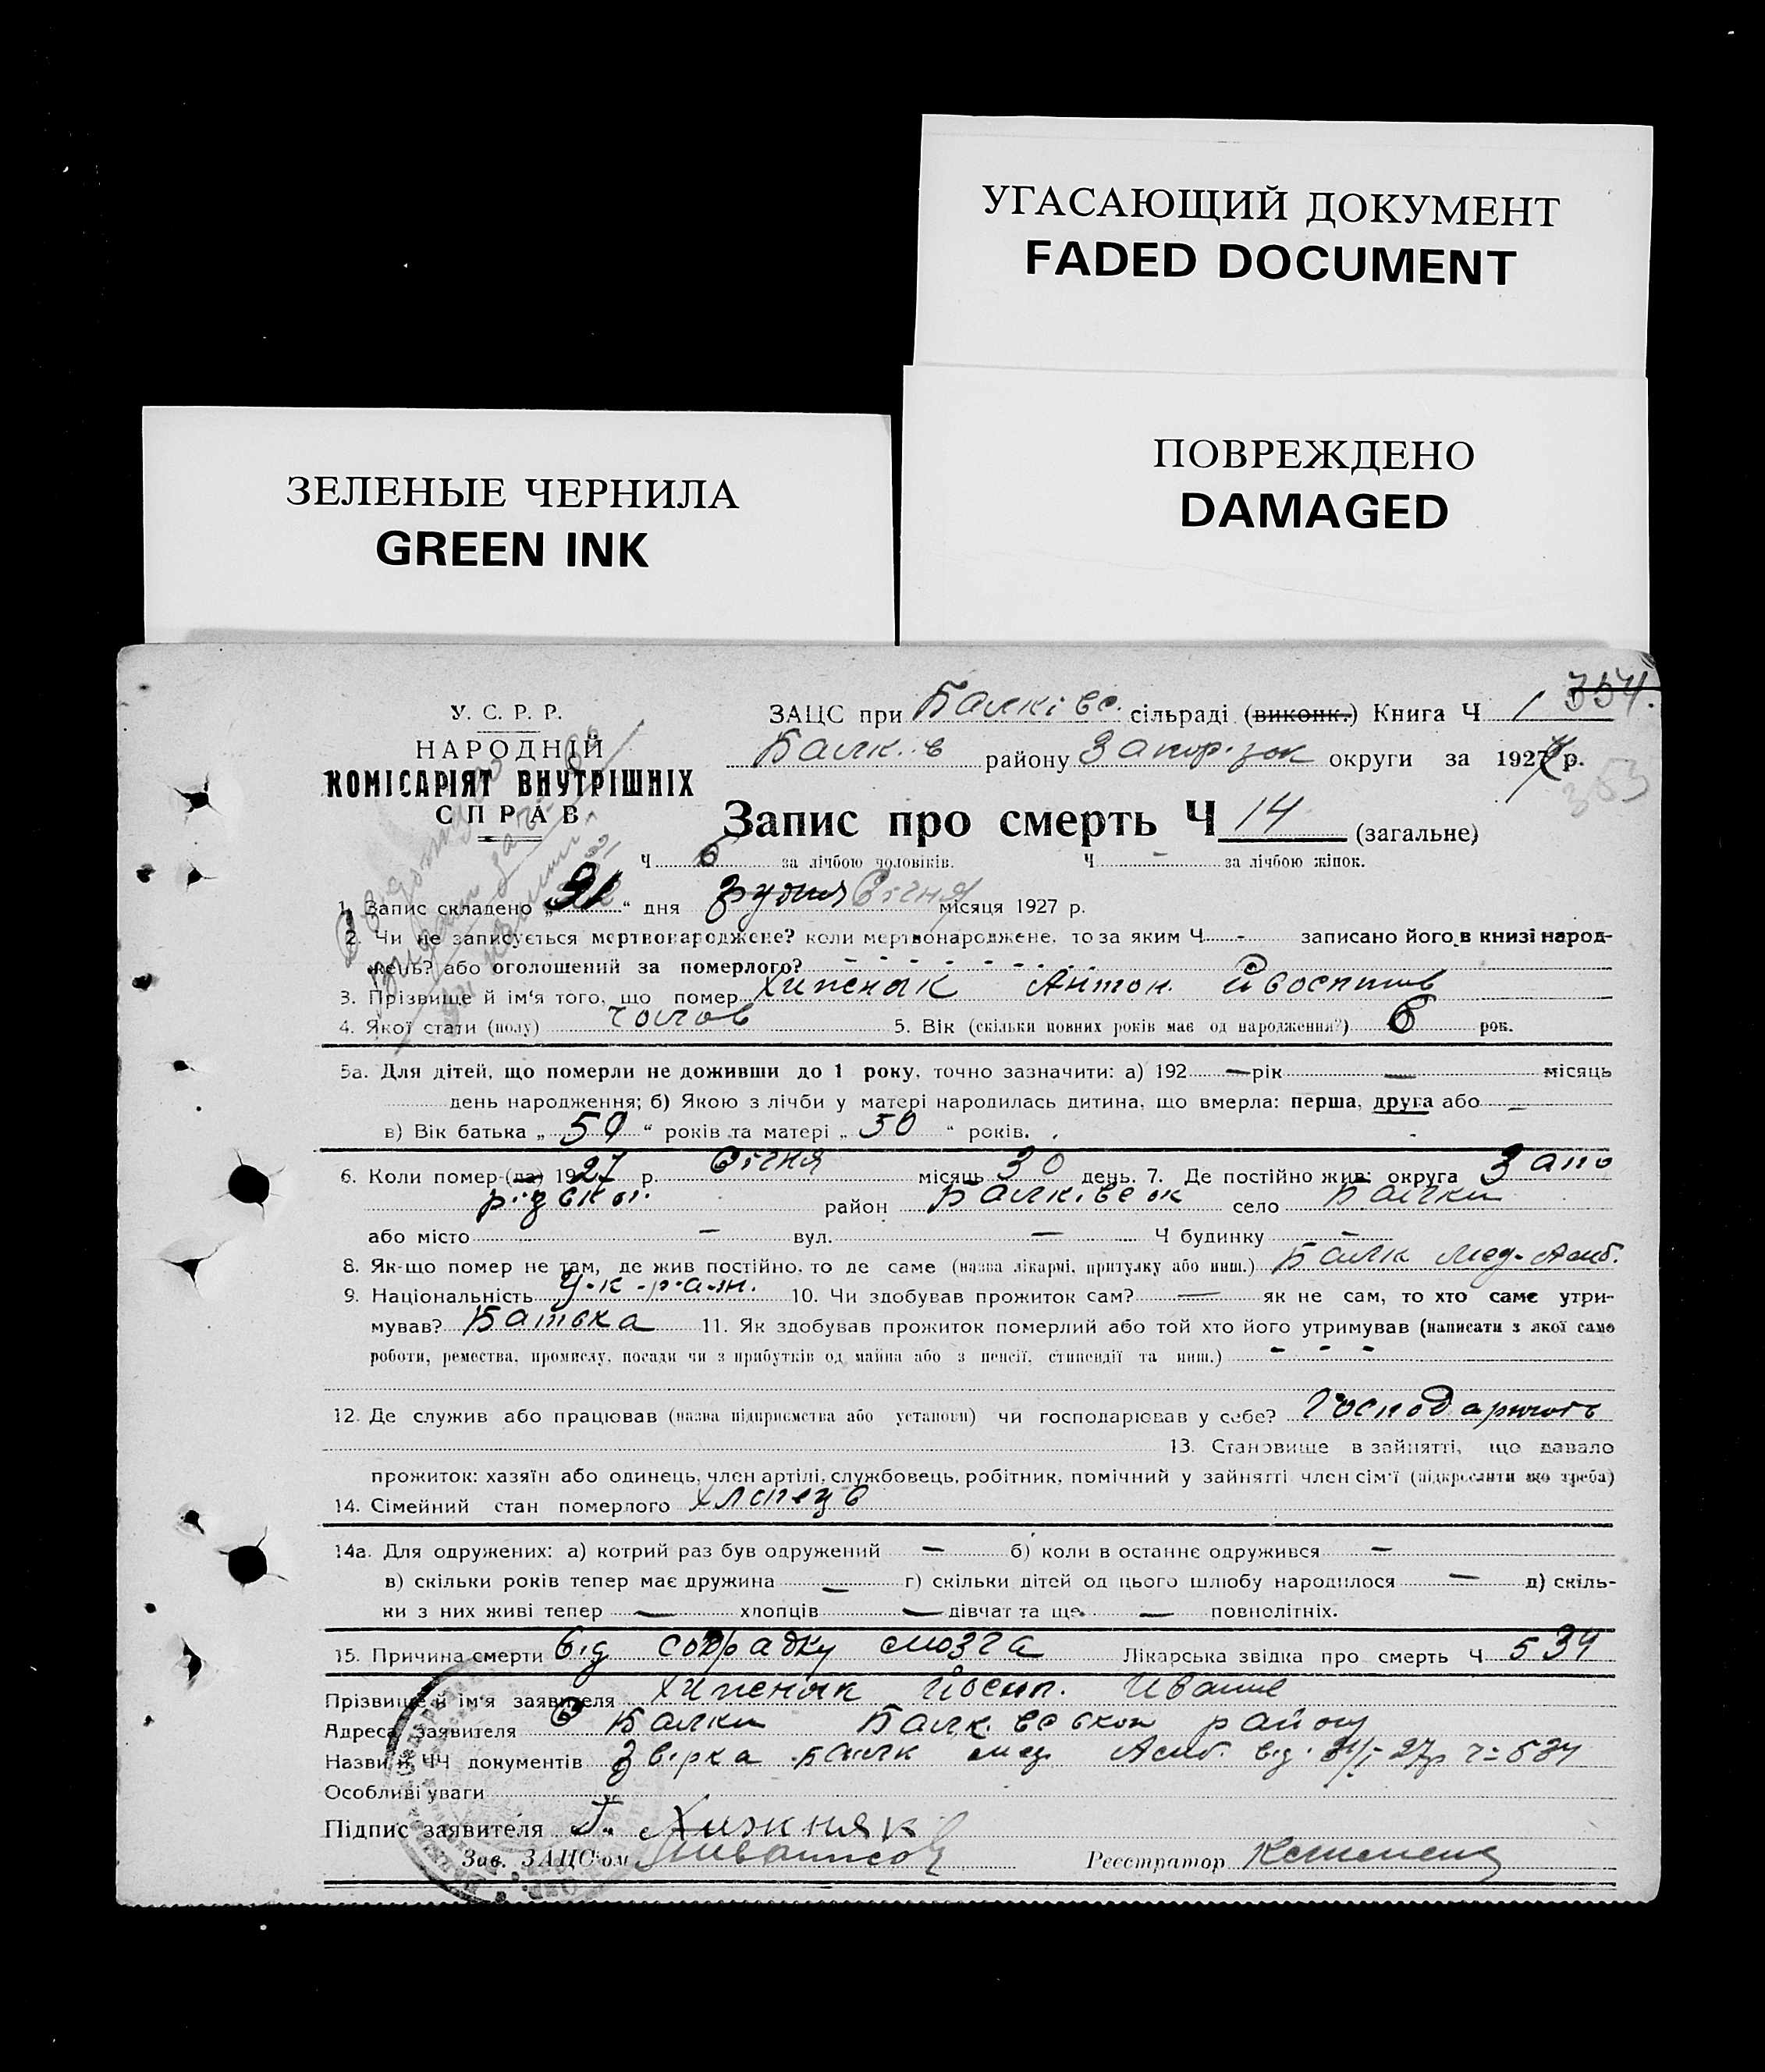 УГАСАЮЩИЙ ДОКУМЕНТ
FADED DOCUMENT
ПОВРЕЖДЕНО
DAMAGED
ЗЕЛЕНЫЕ ЧЕРНИЛА
GREEN INK
354.
353
У. С. Р. Р.
НАРОДНІЙ
КОМІСАРІЯТ ВНУТРІШНІХ
СПРАВ
ЗАЦС при Балківс. сільраді (виконк.) Книга Ч 1
Балк..в району Запор.зок округи за 1927 р.
Запис про смерть Ч 14 (загальне)
Ч 6 за лічбою чоловіків. Ч - за лічбою жінок.
1. Запис складено „31“ дня Січня місяця 1927 р.
2. Чи не записується мертвонароджене? коли мертвонароджене, то за яким Ч - записано його в книзі народ-
жень? або оголошений за померлого? - - - - - - -
3. Прізвище й ім'я того, що помер Хиженяк Антон
4. Якої стати (полу) чолов 5. Вік (скільки повних років має од народження?) 6 рок.
5а. Для дітей, що померли не доживши до 1 року, точно зазначити: а) 192 — рік — місяць
день народження; б) Якою з лічби у матері народилась дитина, що вмерла: перша, друга або —
в) Вік батька „50“ років та матері „50“ років.
6. Коли помер (ла) 1927 р. Січня місяць 30 день. 7. Де постійно жив: округа Запо
різскої район Балківсок село Балки
або місто — вул. — Ч будинку —
8. Як-що помер не там, де жив постійно, то де саме (назва лікарні, притулку або инш.) Балк Мед-Амб.
9. Національність у-к-р-а-їн. 10. Чи здобував прожиток сам? — як не сам, то хто саме утри-
мував? Батька 11. Як здобував прожиток померлий або той хто його утримував (написати з якої само
роботи, ремества, промислу, посади чи з прибутків од майна або з пенсії, стипендії та инш.) - - -
12. Де служив або працював (назва підприємства або установи) чи господарював у себе?
13. Становище в зайнятті, що давало
прожиток: хазяїн або одинець, член артілі, службовець, робітник, помічний у зайнятті член сім'ї (підкреслити що треба)
14. Сімейний стан померлого Хлопець
14а. Для одружених: а) котрий раз був одружений — б) коли в останнє одружився —
в) скільки років тепер має дружина — г) скільки дітей од цього шлюбу народилося — д) скіль-
ки з них живі тепер — хлопців — дівчат та ще — повнолітніх.
15. Причина смерти Від мозга Лікарська звідка про смерть Ч 534
Прізвище й ім'я заявителя Хиженяк Йосип.
Адреса заявителя с Балки Балк. району
Назви й ЧЧ документів Балк мед Амб. від 31/I-27р ч=534
Особливі уваги
Підпис заявителя Хижняк
Зав. ЗАЦС'ом Реєстратор